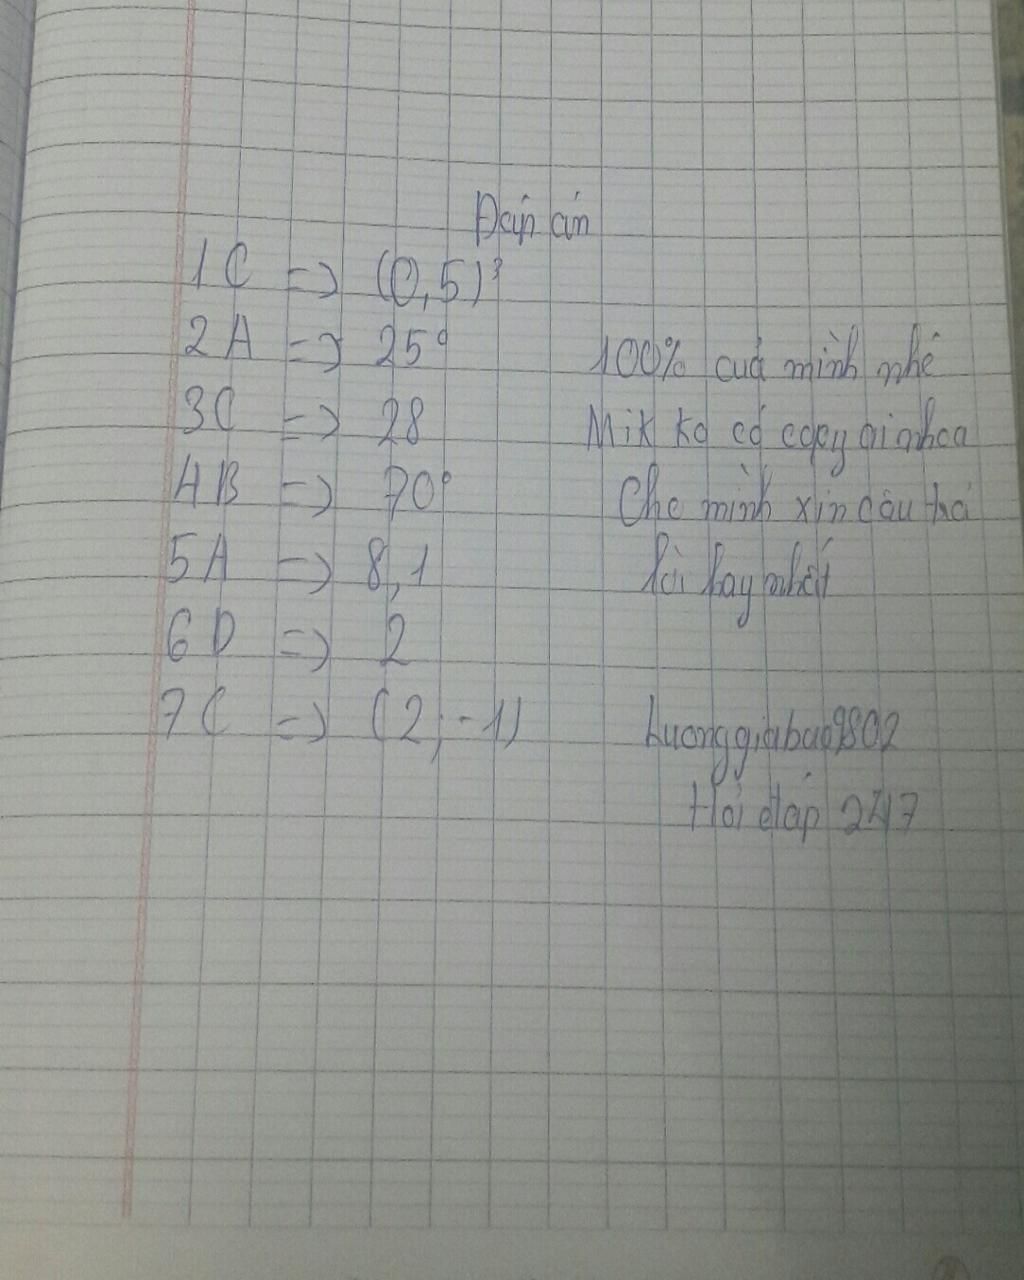 Đáp án
1C => (0,5)³
2A => 25°
100% của mình nhé
3C => 28
Mik ko có copy gi nhoa
4B => 70°
Cho mình xin câu trả
5A => 8,1
lời hay nhất
6D => 2
7C => (2; -1)
Luonggiabao9802
Hỏi đáp 247